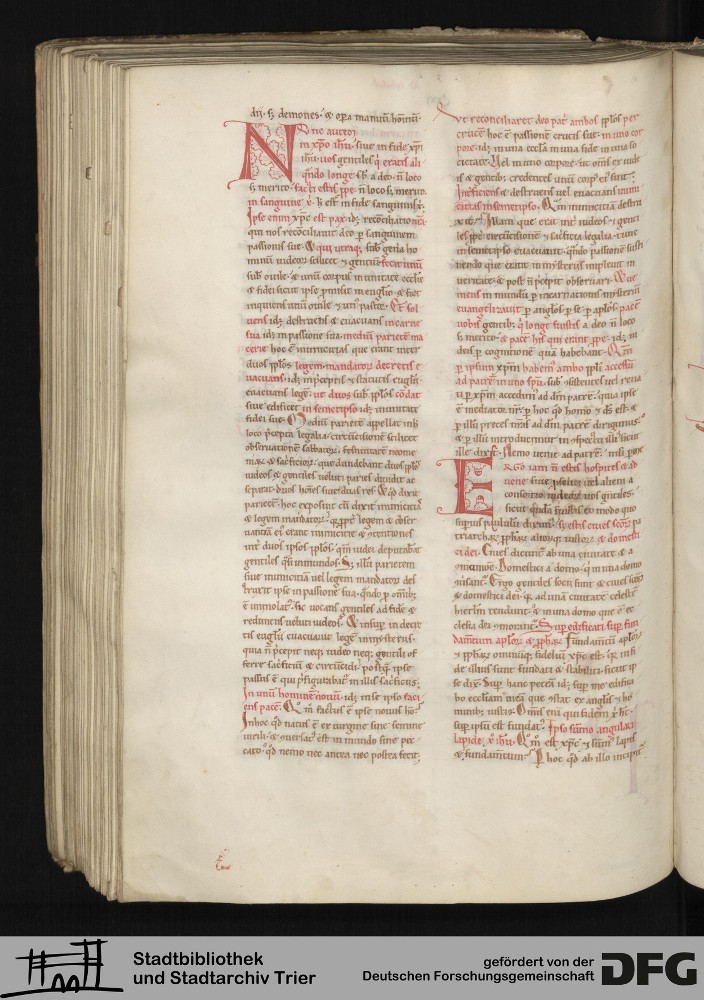 dij. sʒ demones. & oꝑa manuū homīnū.
Nunc autem
in xp̄o ihū. siue in fide xp̄i
ihū. uos gentiles q̄ eratis ali
qn̄do longe. sꝫ a deo. n̄ loco
sʒ merito. facti estis ꝓpe. n̄ loco sʒ merito.
in sanguine x̄. hͦ est in fide sanguinis x̄.
Ipse enim xp̄c est pax. idʒ reconciliatio nr̄a
qui nos recōciliauit deo ꝑ sanguinem
passionis sue. & qui utraq;
minū iudeoꝝ scilicet & gentiū fecit unū
sub ouile. & unū corpus in unitate ecclie
& fidei sicut ipse ꝓmisit in euglio. & fiet
inquiens unū ouile & un' pastor. Et sol
uens idʒ destruens & euacuans in carne
sua idʒ in passione sua. mediū parietē ma
cerie hoc ē inimicitias que erant inter
duos pplos. legem mandatoꝝ decretis e
uacuans. idʒ p̄ceptis & statutis euglii.
euacuans legē. ut duos sub. pplos cōdat
siue edificet in semetipso idʒ in unitate
fidei sue. Mediū parietē appellat
loco p̄cepta legalia. circūcisionē scilicet
obseruationē sabbatoꝝ. festiuitatē neome
niaꝝ & sacrificioꝝ. que diuidebant duos pplos
iudeos & gentiles ueluti paries diuidit ac
separat duos hoīes siue duas res. & qd̄ dixit
parietē. hoc exposuit cū dixit inimicitiā
& legem mandatoꝝ. ꝓpt̄ legem & obser
uantiā ei' erant inimicitie & cōtentiones
int̄ duos ipsos pplos. qm̄ iudei deputabāt
gentiles qs̄i inmundos. Sʒ illū parietem
siue inimicitiā uel legem mandatoꝝ des
truxit ipse in passione sua. qn̄do ꝑ omībʒ
ē immolat'. sic uocans gentiles ad fidē &
reducens ueluti iudeos. & insuꝑ in decre
tis euglii euacuauit legē in mysteriis.
quia n̄ p̄cepit neqʒ iudeo neqʒ gentili of
ferre sacrificiū & circūcidi. postq̄ ipse
passus ē qui p̄figurabat̄ in illis sacrificiis.
In unū hominē nouū. idʒ in se ipso faci
ens pacē. Qm̄ factus ē ipse nouus hō.
In hoc qd̄ natus ē ex uirgine sine semine
uirili. & uersat' est in mundo sine pec
cato. qd̄ nemo nec antea nec postea fecit.
Vt reconciliaret deo patꝭ ambos pplos per
crucē hoc ē passionē crucis sue. in uno cor
pore. idʒ in una eccla in una fide in una so
cietate. Vel in uno corpore. ut om̄s ex iude
is & gentibʒ credentes unū corp' eī sint.
Interficiens & destruens uel euacuans inimi
citias in semetipso. Qm̄ inimicitiā destru
xit. Illam que erat int̄ iudeos & genti
les ꝓpt̄ circūcisionē & sacrificia legalia. tunc
in semetipso euacuauit. qn̄do passionē susti
nendo que erant in mysteriis impleuit in
ueritate. & post n̄ p̄cepit obseruari. & ue
niens in mundū ꝑ incarnationis mysteriū
euangelizauit ꝑ anglos. ꝑ se ꝑ aplos. pacē
uobis gentibʒ. q̄ longe fuistis a deo n̄ loco
sʒ merito. & pacē his qui erant ꝓpe. idʒ iu
deis ꝑ cognitionē quā habebant. Qm̄
ꝑ ipsum xp̄m habem' ambo ppli accessū
ad patrē in uno spu. sub. subsistentes uel rena
ti. ꝑ xp̄m accedim' ad dm̄ patrē. quia ipse
ē mediator nr̄. ꝑ hoc qd̄ homo & ds̄ est. &
ꝑ illi' preces nr̄as ad dm̄ patrē dirigimus.
& ꝑ illū introducimur in cspectū illi'. sicut
ille dixit. Nemo uenit ad patrē nisi ꝑ me.
Ergo iam n̄ estis hospites & ad
uene siue pselui uel alieni a
consortio iudeoꝝ uos gentiles.
sicut quōdā fuistis ex modo quo
supius paululū dixim'. Sʒ estis ciues scōꝝ pa
triarchaꝝ pphaꝝ alioꝝqʒ iustoꝝ. & domesti
ci dei. Ciues dicunt' ab una ciuitate & a
municione. Domestici a domo. q̄ in una domo
māsant. Ergo gentiles socii sunt & ciues scōꝝ
& domestici dei. qʒ ad unā ciuitatē celestē
hierlm tendunt. & in una domo que ē ec
clesia dei cōmorant'. Suꝑedificati suꝑ fun
damtum aploꝝ & pphaꝝ. Fundamtū aploꝝ
& pphaꝝ omniuqʒ fideliū xp̄c est. qʒ in fi
de illius sunt fundati & stabiliti. sicut ip
se dix̄. Sup hanc petrā idʒ sup me edifica
bo eccliam meā que cstat ex anglis & ho
minibʒ iustis. Om̄s enī qui fidem x̄ hn̄t.
sup ipsū est fundat'. Ipso sūmo angulari
lapide. x̄ ihū. Qm̄ est xp̄c & sūm' lapis
& fundamtum. Ꝑ hoc qd̄ ab illo incipit
Stadtbibliothek
und Stadtarchiv Trier
gefördert von der
Deutschen Forschungsgemeinschaft
DFG